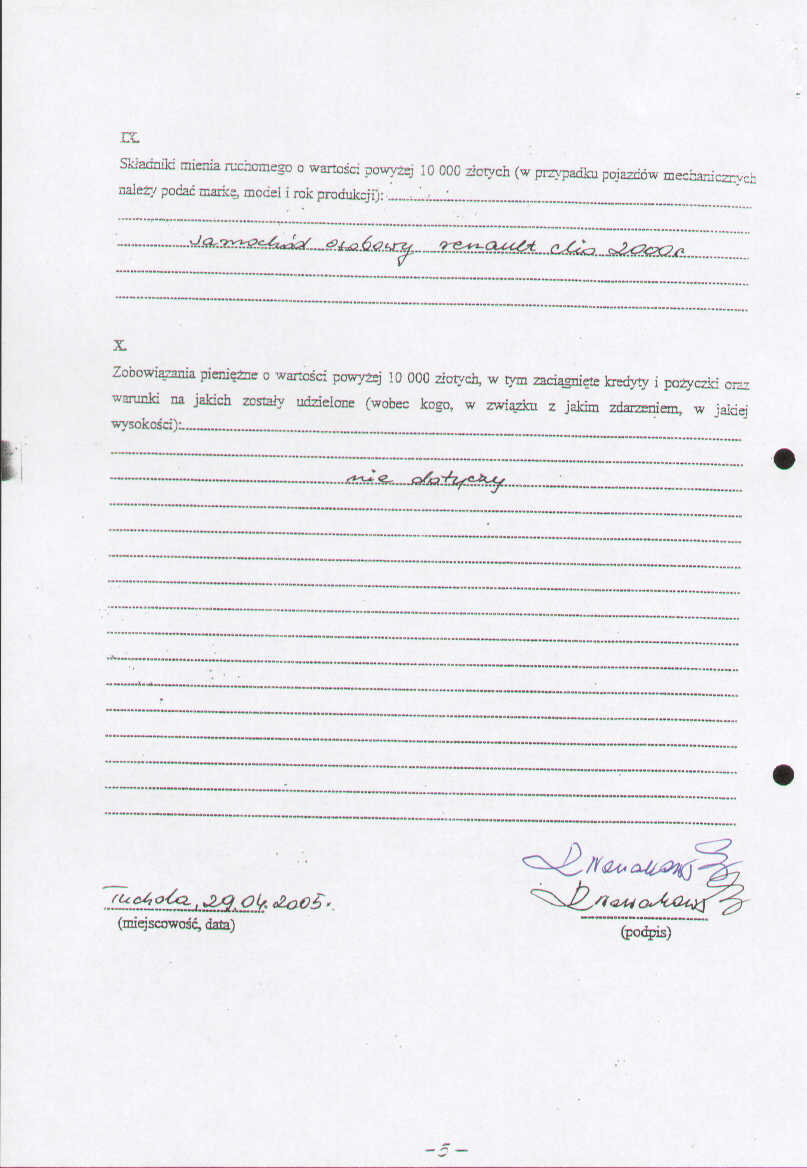 IX.
Składniki mienia ruchomego o wartości powyżej 10 000 złotych (w przypadku pojazdów mechanicznych
należy podać markę, model i rok produkcji):
samochód osobowy renault clio 2000r
X.
Zobowiązania pieniężne o wartości powyżej 10 000 złotych, w tym zaciągnięte kredyty i pożyczki oraz
warunki na jakich zostały udzielone (wobec kogo, w związku z jakim zdarzeniem, w jakiej
wysokości):
nie dotyczy
Tuchola, 29.04.2005r.
(miejscowość, data)
(podpis)
- 5 -